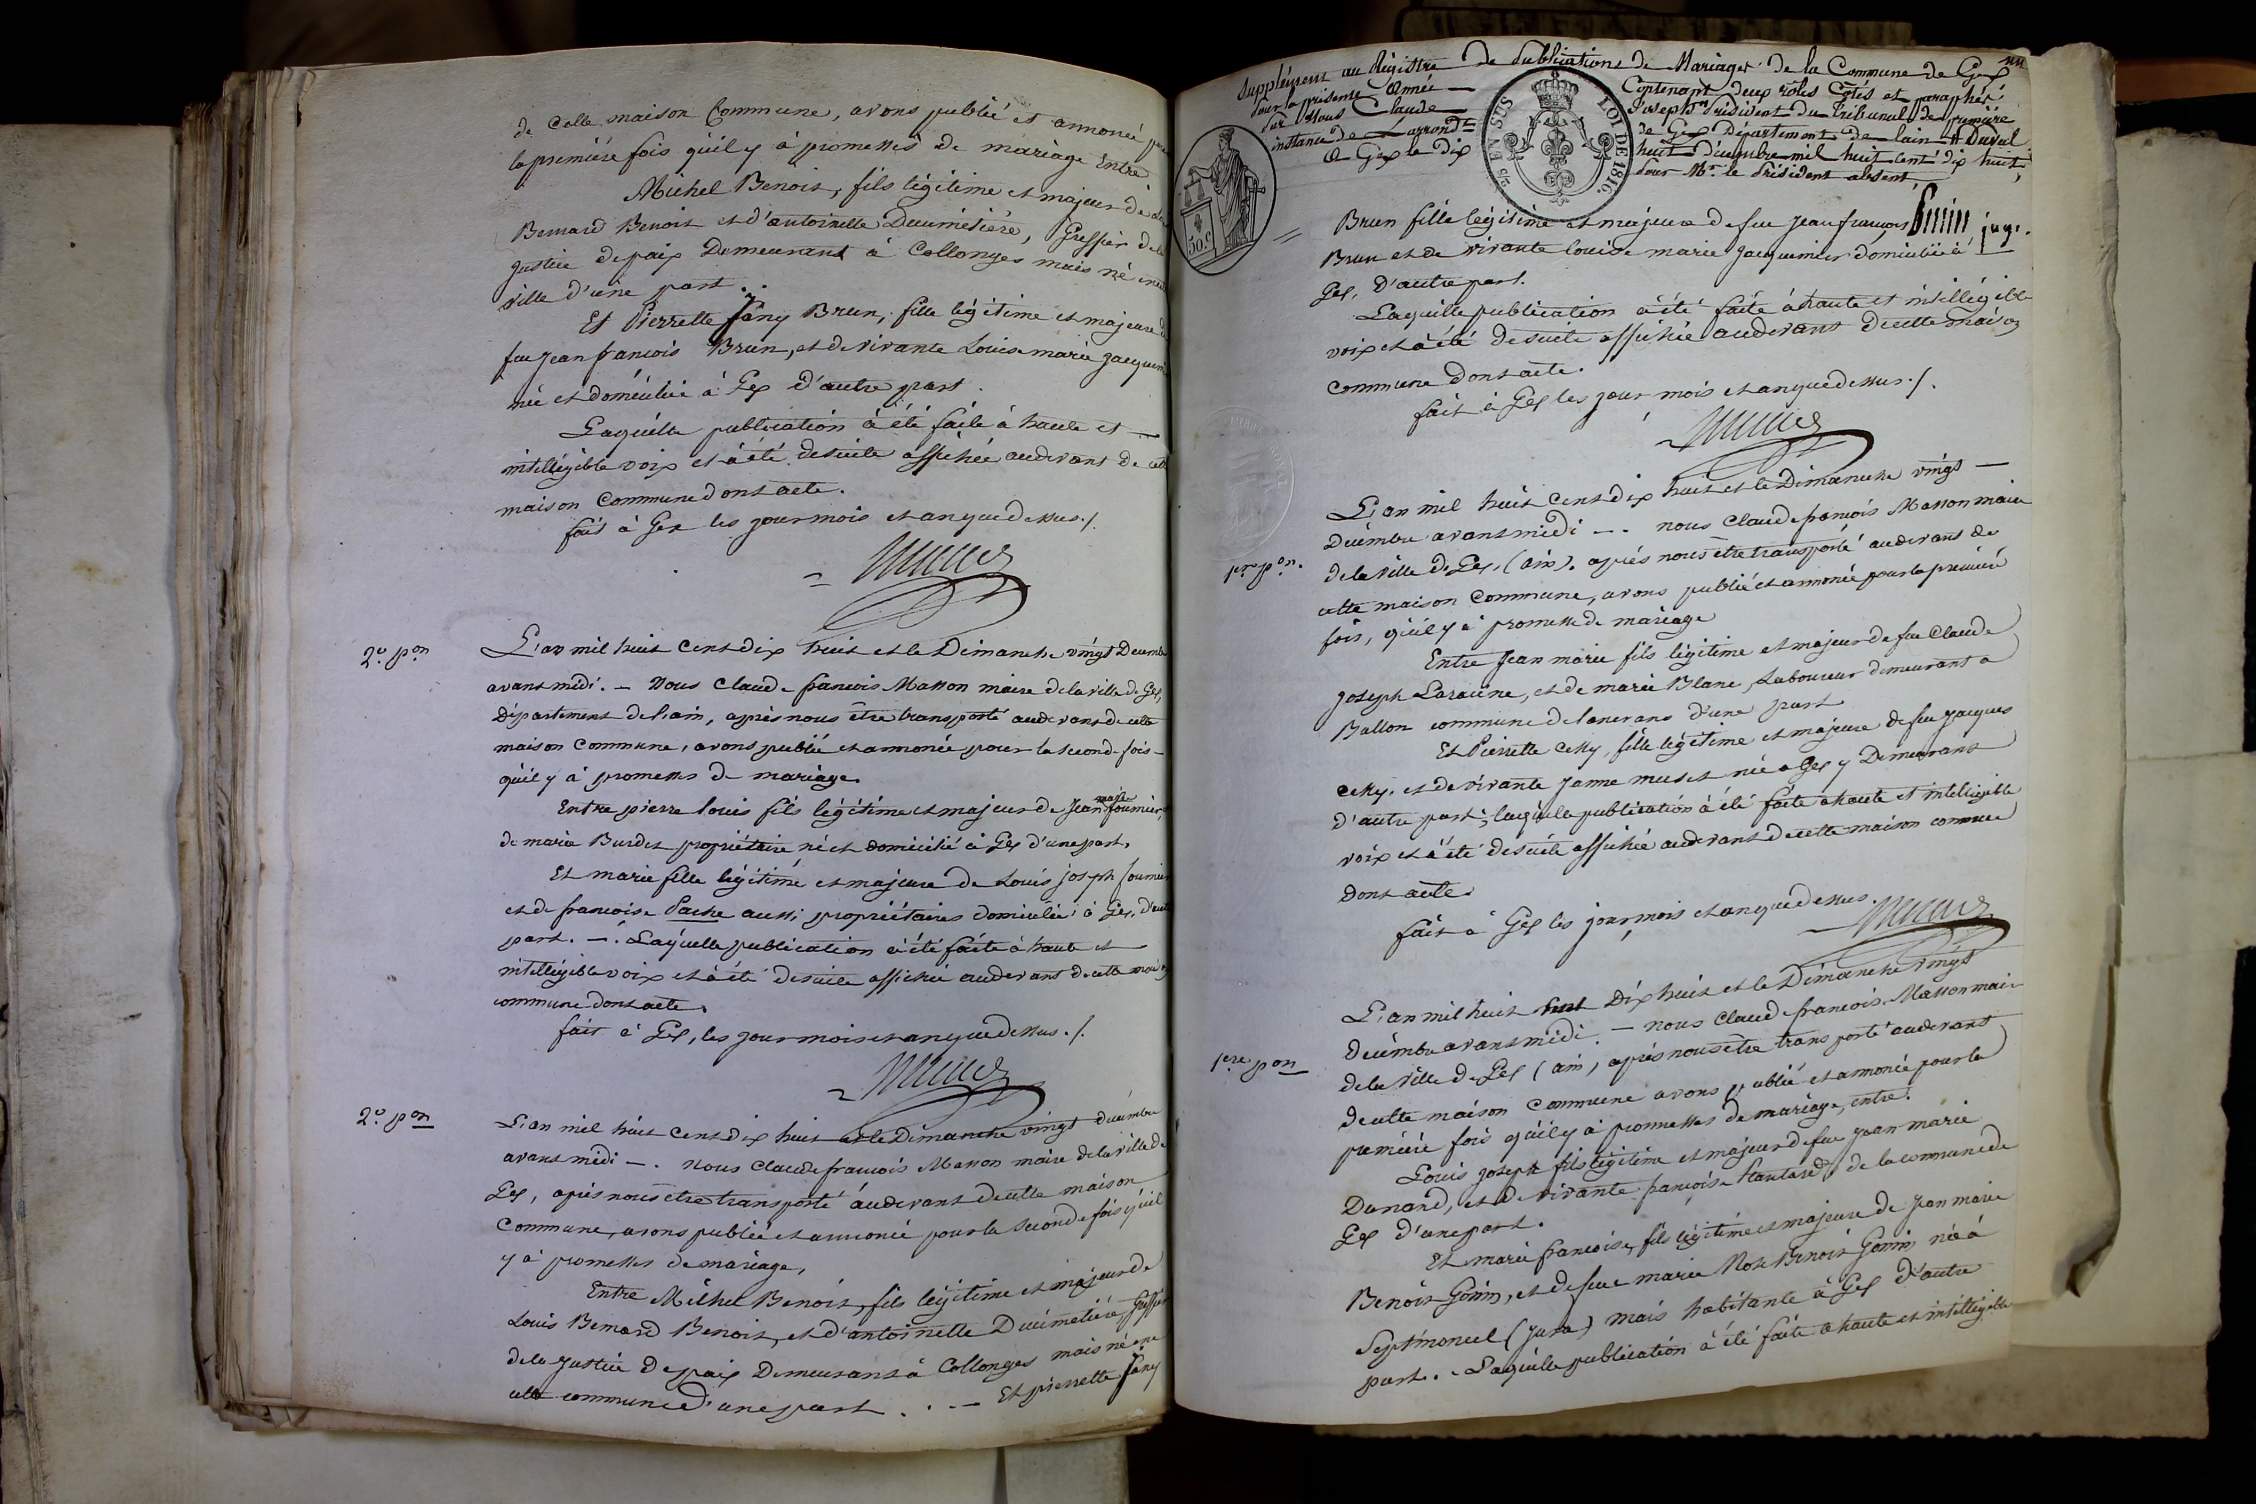 de cette maison Commune, avons publié et annoncé pour
la première fois qu'il y à promesses de mariage Entre
Michel Benoit, fils légitime et majeur de
Bernard Benoit et d'antoinette Ducimetière, Greffier de la
Justice de paix Demeurant à Collonges mais né en cette
ville d'une part.
Et Pierrette fany Brun, fille légitime et majeure de
feu Jean francois Brun, et de vivante Louise marie Jacquemier
née et domiciliée à Gex d'autre part.
Laquelle publication à été faite à haute et —
intelligible voix et à été de suite affichée audevant de cette
maison Commune dont acte.
fait à Gex les jour mois et an que dessus ./.
2.e p.on
L'an mil huit cent dix huit et le Dimanche vingt Decembre
avant midi. — Nous Claude francois Masson maire de la ville de Gex,
Département de l'ain, après nous être transporté audevant de cette
maison Commune, avons publié et annoncé pour la seconde fois —
qu'il y à promesses de mariage
Entre pierre Louis fils légitime et majeur de Jean marie fournier, et
de marie Burdet propriétaire né et domicilié à Gex d'une part,
Et marie fille légitime et majeure de Louis joseph fournier
et de francoise Pache aussi propriétaires domiciliée à Gex, d'autre
part. —. Laquelle publication à été faite à haute et
intelligible voix et à été de suite affichée audevant de cette maison
commune dont acte.
fait à Gex, les jour mois et an que dessus ./.
2.e p.on
L'an mil huit cent dix huit et le Dimanche vingt décembre
avant midi —. Nous Claude francois Masson maire de la ville de
Gex, après nous être transporté audevant de cette maison
Commune, avons publié et annoncé pour la seconde fois qu'il
y à promesses de mariage,
Entre Michel Benoit, fils légitime et majeur de
Louis Bernard Benoit, et d'antoinette Ducimetière, Greffier
de la Justice De paix Demeurant à Collonges mais né en
cette commune d'une part . . — Et pierrette fany
Supplément au Régistre de Publications de Mariages de la Commune de Gex
Pour la présente Année — Contenant deux rôles Cotés et paraphés
Par Nous Claude Joseph Président du Tribunal de première
instance de l'arrond.t de Gex Département de lain
A Gex le dix huit décembre mil huit cent dix huit,
Pour M.r le Président absent,
juge.
EN SUS
LOI DE 1816.
50.c
Brun fille légitime et majeure de feu Jean francois
Brun et de vivante Louise marie Jacquemier domiciliée à
Gex, d'autre part.
Laquelle publication à été faite à haute et intelligible
voix et à été de suite affichée audevant de cette maison
commune dont acte.
fait à Gex les jour mois et an que dessus ./.
1.re p.on
L'an mil huit Cent dix huit et le Dimanche vingt —
Décembre avant midi —. nous Claude francois Masson maire
de la ville de Gex, (ain). après nous être transporté audevant de
cette maison Commune, avons publié et annoncé pour la première
fois, qu'il y à promesse de mariage
Entre Jean marie fils légitime et majeur de feu Claude
Joseph Laracine, et de marie Blanc, Laboureur demeurant a
Ballon commune de lancrans d'une part
Et Pierrette Cetty, fille légitime et majeure de feu Jacques
Cetty, et de vivante Janne musset née a Gex y Demeurant
d'autre part; laquelle publication à été faite à haute et intelligible
voix et à été de suite affichée audevant de cette maison commune
Dont acte.
fait à Gex les jour, mois et an que dessus.
1.ere p.on
L'an mil huit cent Dix huit et le Dimanche vingt
décembre avant midi. — nous Claude francois Masson maire
de la ville de Gex (ain) après nous être transporté audevant
de cette maison Commune avons publié et annoncé pour la
première fois qu'il y à promesses de mariage, entre.
Louis joseph fils légitime et majeur de feu Jean marie
Dunand, et de vivante françoise hantard, de la commune de
Gex d'une part.
Et marie francoise, fils légitime et majeure de Jean marie
Benoit Gonin, et de feue marie Rose Benoit Gonin née à
Septmoncel (Jura) mais habitante à Gex d'autre
part. . Laquelle publication à été faite à haute et intelligible